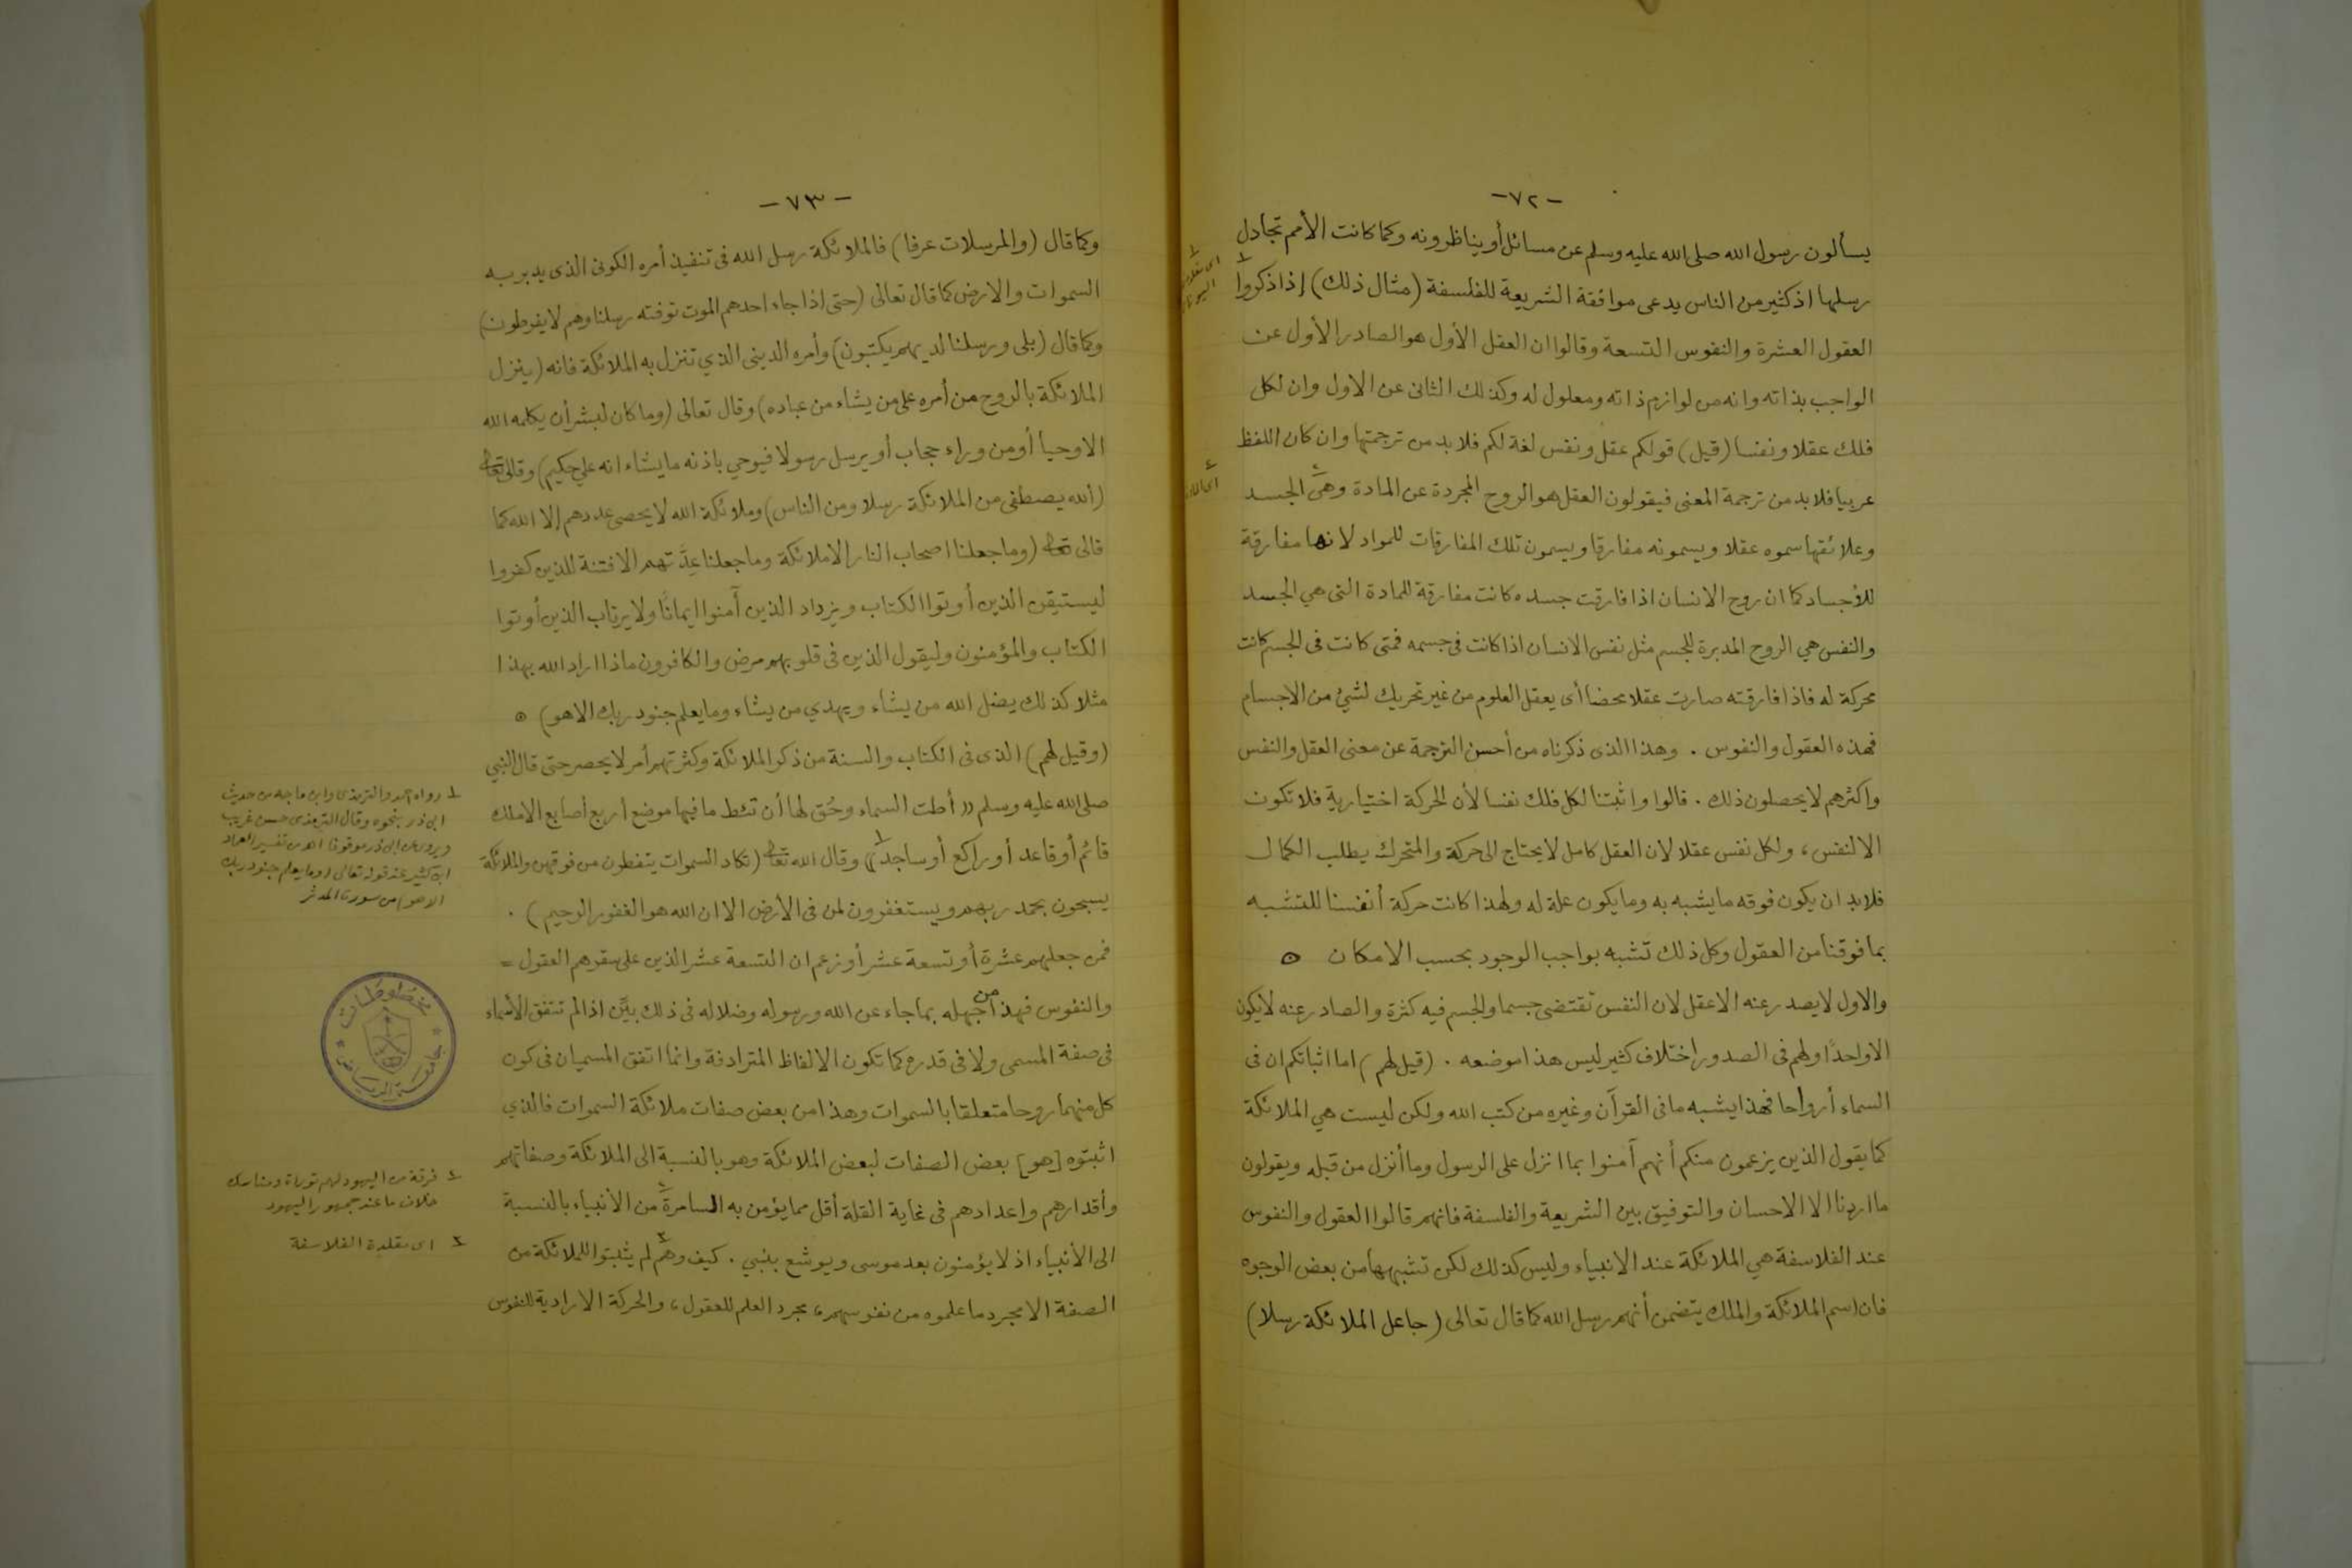 -٧٢-
يسألون رسول الله صلى الله عليه وسلم عن مسائل أو يناظرونه وكما كانت الأمم تجادل
رسلها اذ كثير من الناس يدعى موافقة الشريعة للفلسفة (مثال ذلك) إذا ذكروا
العقول العشرة والنفوس التسعة وقالوا ان العقل الأول هو الصادر الأول عن
الواجب بذاته وانه من لوازم ذاته ومعلول له وكذلك الثانى عن الاول وان لكل
فلك عقلا ونفسا (قيل) قولكم عقل ونفس لغة لكم فلا بد من ترجمتها وان كان اللفظ
عربيا فلا بد من ترجمة المعنى فيقولون العقل هو الروح المجردة عن المادة وهى الجسد
وعلائقها سموه عقلا ويسمونه مفارقا ويسمون تلك المفارقات للمواد لانها مفارقة
للأجساد كما ان روح الانسان اذا فارقت جسده كانت مفارقة للمادة التى هي الجسد
والنفس هي الروح المدبرة للجسم مثل نفس الانسان اذا كانت فى جسمه فمتى كانت فى الجسم كانت
محركة له فاذا فارقته صارت عقلا محضا أى يعقل العلوم من غير تحريك لشئ من الاجسام
فهذه العقول والنفوس . وهذا الذى ذكرناه من أحسن الترجمة عن معنى العقل والنفس
واكثرهم لا يحصلون ذلك . قالوا واثبتنا لكل فلك نفسا لأن الحركة اختيارية فلا تكون
الا لنفس ، ولكل نفس عقلا لان العقل كامل لا يحتاج الى حركة والمتحرك يطلب الكمال
فلابد ان يكون فوقه ما يشبه به وما يكون علة له ولهذا كانت حركة أنفسنا للتشبه
بما فوقنا من العقول وكل ذلك تشبه بواجب الوجود بحسب الامكان ⊙
والاول لا يصدر عنه الا عقل لان النفس تقتضى جسما والجسم فيه كثرة والصادر عنه لا يكون
الا واحدًا ولهم فى الصدور اختلاف كثير ليس هذا موضعه . (قيل لهم) اما اثباتكم ان فى
السماء أرواحا فهذا يشبه ما فى القرآن وغيره من كتب الله ولكن ليست هي الملائكة
كما يقول الذين يزعمون منكم أنهم آمنوا بما انزل على الرسول وما أنزل من قبله ويقولون
ما اردنا الا الاحسان والتوفيق بين الشريعة والفلسفة فانهم قالوا العقول والنفوس
عند الفلاسفة هي الملائكة عند الانبياء وليس كذلك لكن تشبهها من بعض الوجوه
فان اسم الملائكة والملك يتضمن أنهم رسل الله كما قال تعالى (جاعل الملائكة رسلا)
-٧٣-
وكما قال (والمرسلات عرفا) فالملائكة رسل الله فى تنفيذ أمره الكونى الذى يدبر به
السموات والارض كما قال تعالى (حتى اذا جاء احدهم الموت توفته رسلنا وهم لا يفرطون)
وكما قال (بلى ورسلنا لديهم يكتبون) وأمره الدينى الذي تنزل به الملائكة فانه (ينزل
الملائكة بالروح من أمره على من يشاء من عباده) وقال تعالى (وما كان لبشر أن يكلمه الله
الا وحيا أو من وراء حجاب أو يرسل رسولا فيوحي باذنه ما يشاء انه علي حكيم) وقال تعالى
(الله يصطفى من الملائكة رسلا ومن الناس) وملائكة الله لا يحصى عددهم إلا الله كما
قال تعالى (وما جعلنا اصحاب النار الا ملائكة وما جعلنا عِدَّتهم الا فتنة للذين كفروا
ليستيقن الذين أوتوا الكتاب ويزداد الذين آمنوا ايمانًا ولا يرتاب الذين أوتوا
الكتاب والمؤمنون وليقول الذين فى قلوبهم مرض والكافرون ماذا اراد الله بهذا
مثلا كذلك يضل الله من يشاء ويهدي من يشاء وما يعلم جنود ربك الا هو) ⊙
(وقيل لهم) الذى فى الكتاب والسنة من ذكر الملائكة وكثرتهم أمر لا يحصر حتى قال النبي
صلى الله عليه وسلم «أطت السماء وحُق لها أن تئط ما فيها موضع اربع أصابع الا ملك
قائم أو قاعد أو راكع أو ساجد١» وقال الله تعالى (تكاد السموات يتفطرن من فوقهن والملائكة
يسبحون بحمد ربهم ويستغفرون لمن فى الأرض الا ان الله هو الغفور الرحيم) .
فمن جعلهم عشرة أو تسعة عشر أو زعم ان التسعة عشر الذين على سقر هم العقول =
والنفوس فهذا من جهله بما جاء عن الله ورسوله وضلاله فى ذلك بيِّن اذ لم تتفق الأسماء
فى صفة المسمى ولا فى قدره كما تكون الالفاظ المترادفة وانما اتفق المسميان فى كون
كل منهما روحا متعلقا بالسموات وهذا من بعض صفات ملائكة السموات فالذي
اثبتوه [هو] بعض الصفات لبعض الملائكة وهو بالنسبة الى الملائكة وصفاتهم
وأقدارهم واعدادهم فى غاية القلة أقل مما يؤمن به السامرة٢ من الأنبياء بالنسبة
الى الأنبياء اذ لا يؤمنون بعد موسى ويوشع بنبي . كيف وهم٣ لم يثبتوا للملائكة من
الصفة الا مجرد ما علموه من نفوسهم ، مجرد العلم للعقول ، والحركة الارادية للنفوس
١ رواه احمد والترمذى وابن ماجه من حديث
ابى ذر بنحوه وقال الترمذى حسن غريب
ويروى عن ابى ذر موقوفا اهـ من تفسير العماد
ابن كثير عند قوله تعالى (وما يعلم جنود ربك
الا هو) من سورة المدثر
مخطوطات
جامعة الرياض
٢ فرقة من اليهود لهم توراة ومناسك
خلاف ما عند جمهور اليهود
٣ اى مقلدة الفلاسفة